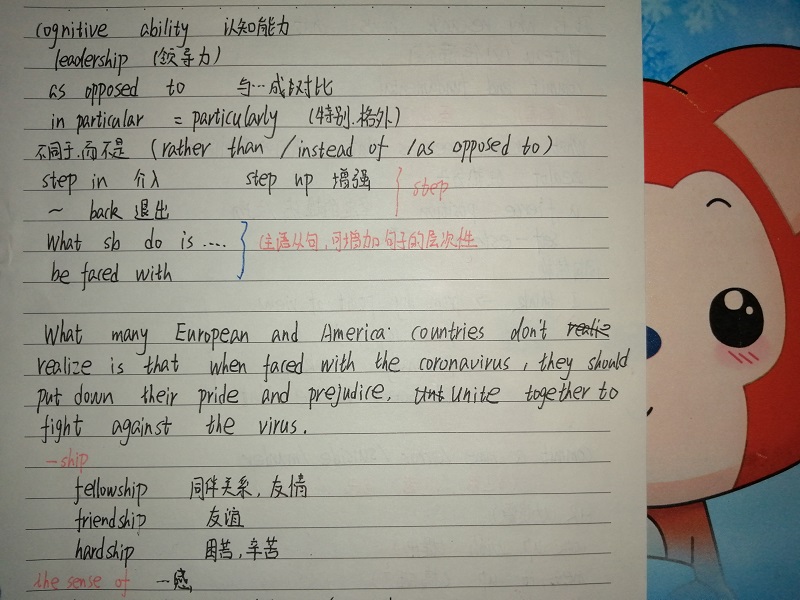 cognitive ability 认知能力
leadership (领导力)
as opposed to 与…成对比
in particular = particularly (特别.格外)
不同于.而不是 (rather than / instead of / as opposed to)
step in 介入 step up 增强 step
~ back 退出
What sb do is .... 主语从句,可增加句子的层次性
be faced with
What many European and America countries don't realize
realize is that when faced with the coronavirus, they should
put down their pride and prejudice. Unt Unite together to
fight against the virus.
-ship
fellowship 同伴关系,友情
friendship 友谊
hardship 困苦,辛苦
the sense of 一感